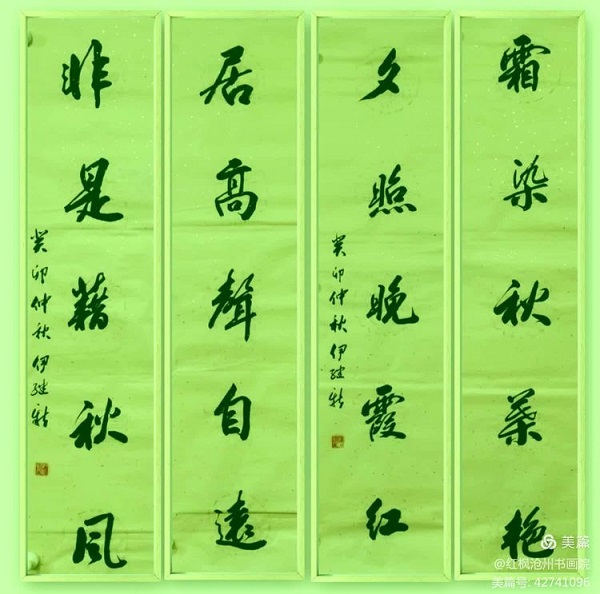 霜染秋葉艳
夕照晚霞红
癸卯仲秋伊继新
居高聲自遠
非是藉秋风
癸卯仲秋伊继新
美篇
@红枫沧州书画院
美篇号: 42741096